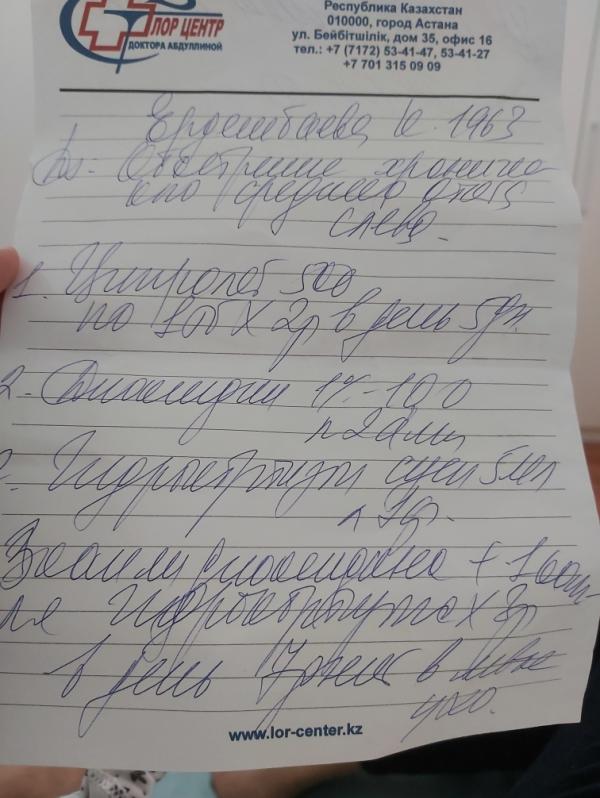 Республика Казахстан
010000, город Астана
ул. Бейбітшілік, дом 35, офис 16
тел.: +7 (7172) 53-41-47, 53-41-27
+7 701 315 09 09
ЛОР ЦЕНТР
ДОКТОРА АБДУЛЛИНОЙ
1963
Ds: Обострение хрониче
ого среднего отита
слева.
1. Ципролет 500
по 1тб х 2р в день 5дн.
2. Диоксидин 1% - 10,0
n 2 амп
Гидрокортизон сусп 5мл
n 1фл.
диоксидина + 1 капл
ля гидрокортизона х 3р
в день 7 дней в левое
ухо.
www.lor-center.kz